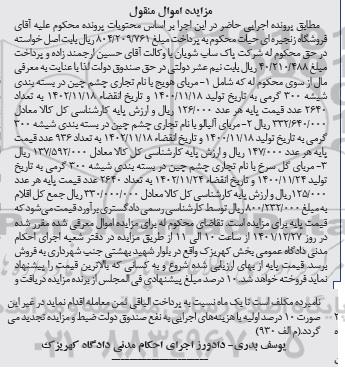 مزایده اموال منقول
مطابق پرونده اجرایی حاضر در این اجرا بر اساس محتویات پرونده محکوم علیه آقای
فروشگاه زنجیره ای حیات محکوم به پرداخت مبلغ ۸۰۴/۲۰۹/۷۶۱ ریال بابت اصل خواسته
در حق محکوم له شرکت پاک ساب شویان با وکالت آقای حسین ارجمند زاده و پرداخت
مبلغ ۴۰/۲۱۰/۴۸۸ ریال بابت نیم عشر دولتی در حق صندوق دولت لذا با عنایت به معرفی
مال از سوی محکوم له که شامل ۱-مربای هویج با نام تجاری چشم چین در بسته بندی
شیشه ۳۰۰ گرمی به تاریخ تولید ۱۴۰۰/۱۱/۱۸ و تاریخ انقضاء ۱۴۰۲/۱۱/۱۸ به تعداد
۲۶۴۰ عدد قیمت پایه هر عدد ۱۲۶/۰۰۰ ریال و ارزش پایه کارشناسی کل کالا معادل
۳۳۲/۶۴۰/۰۰۰ ریال ۲-مربای آلبالو با نام تجاری چشم چین در بسته بندی شیشه ۳۰۰
گرمی به تاریخ تولید ۱۴۰۰/۱۱/۱۸ و تاریخ انقضاء ۱۴۰۲/۱۱/۱۸ به تعداد ۹۳۶ عدد قیمت
پایه هر عدد ۱۴۷/۰۰۰ ریال و ارزش پایه کارشناسی کل کالا معادل ۱۳۷/۵۹۲/۰۰۰ ریال
۳-مربای گل سرخ با نام تجاری چشم چین در بسته بندی شیشه ۳۰۰ گرمی به تاریخ
تولید ۱۴۰۰/۱۱/۲۴ و تاریخ انقضاء ۱۴۰۲/۱۱/۲۴ به تعداد ۲۶۴۰ عدد قیمت پایه هر عدد
۱۲۵/۰۰۰ ریال و ارزش پایه کارشناسی کل کالا معادل ۳۳۰/۰۰۰/۰۰۰ ریال جمع کل اقلام
به مبلغ ۸۰۰/۲۳۲/۰۰۰ ریال توسط کارشناسی رسمی دادگستری برآورد قیمت می‌شود که
قیمت پایه برای مزایده است. تقاضای محکوم له برای مزایده اموال معرفی شده مقرر شده
در روز ۱۴۰۱/۱۲/۲۷ از ساعت ۱۰ الی ۱۱ از طریق مزایده در دفتر شعبه اجرای احکام
مدنی دادگاه عمومی بخش کهریزک واقع در بلوار شهید بهشتی جنب شهرداری به فروش
برسد. قیمت پایه از بهای ارزیابی شده شروع و به کسانی که بالاترین قیمت را پیشنهاد
نماید فروخته خواهد شد. ۱۰ درصد مبلغ پیشنهادی فی المجلس از برنده مزایده دریافت و
نامبرده مکلف است تا یک ماه نسبت به پرداخت الباقی ثمن معامله اقدام نماید در غیر این
صورت ۱۰ درصد اولیه با هزینه‌های اجرایی به نفع صندوق دولت ضبط و مزایده تجدید می
گردد.(م الف ۹۳۰)
یوسف بدری- دادورز اجرای احکام مدنی دادگاه کهریزک